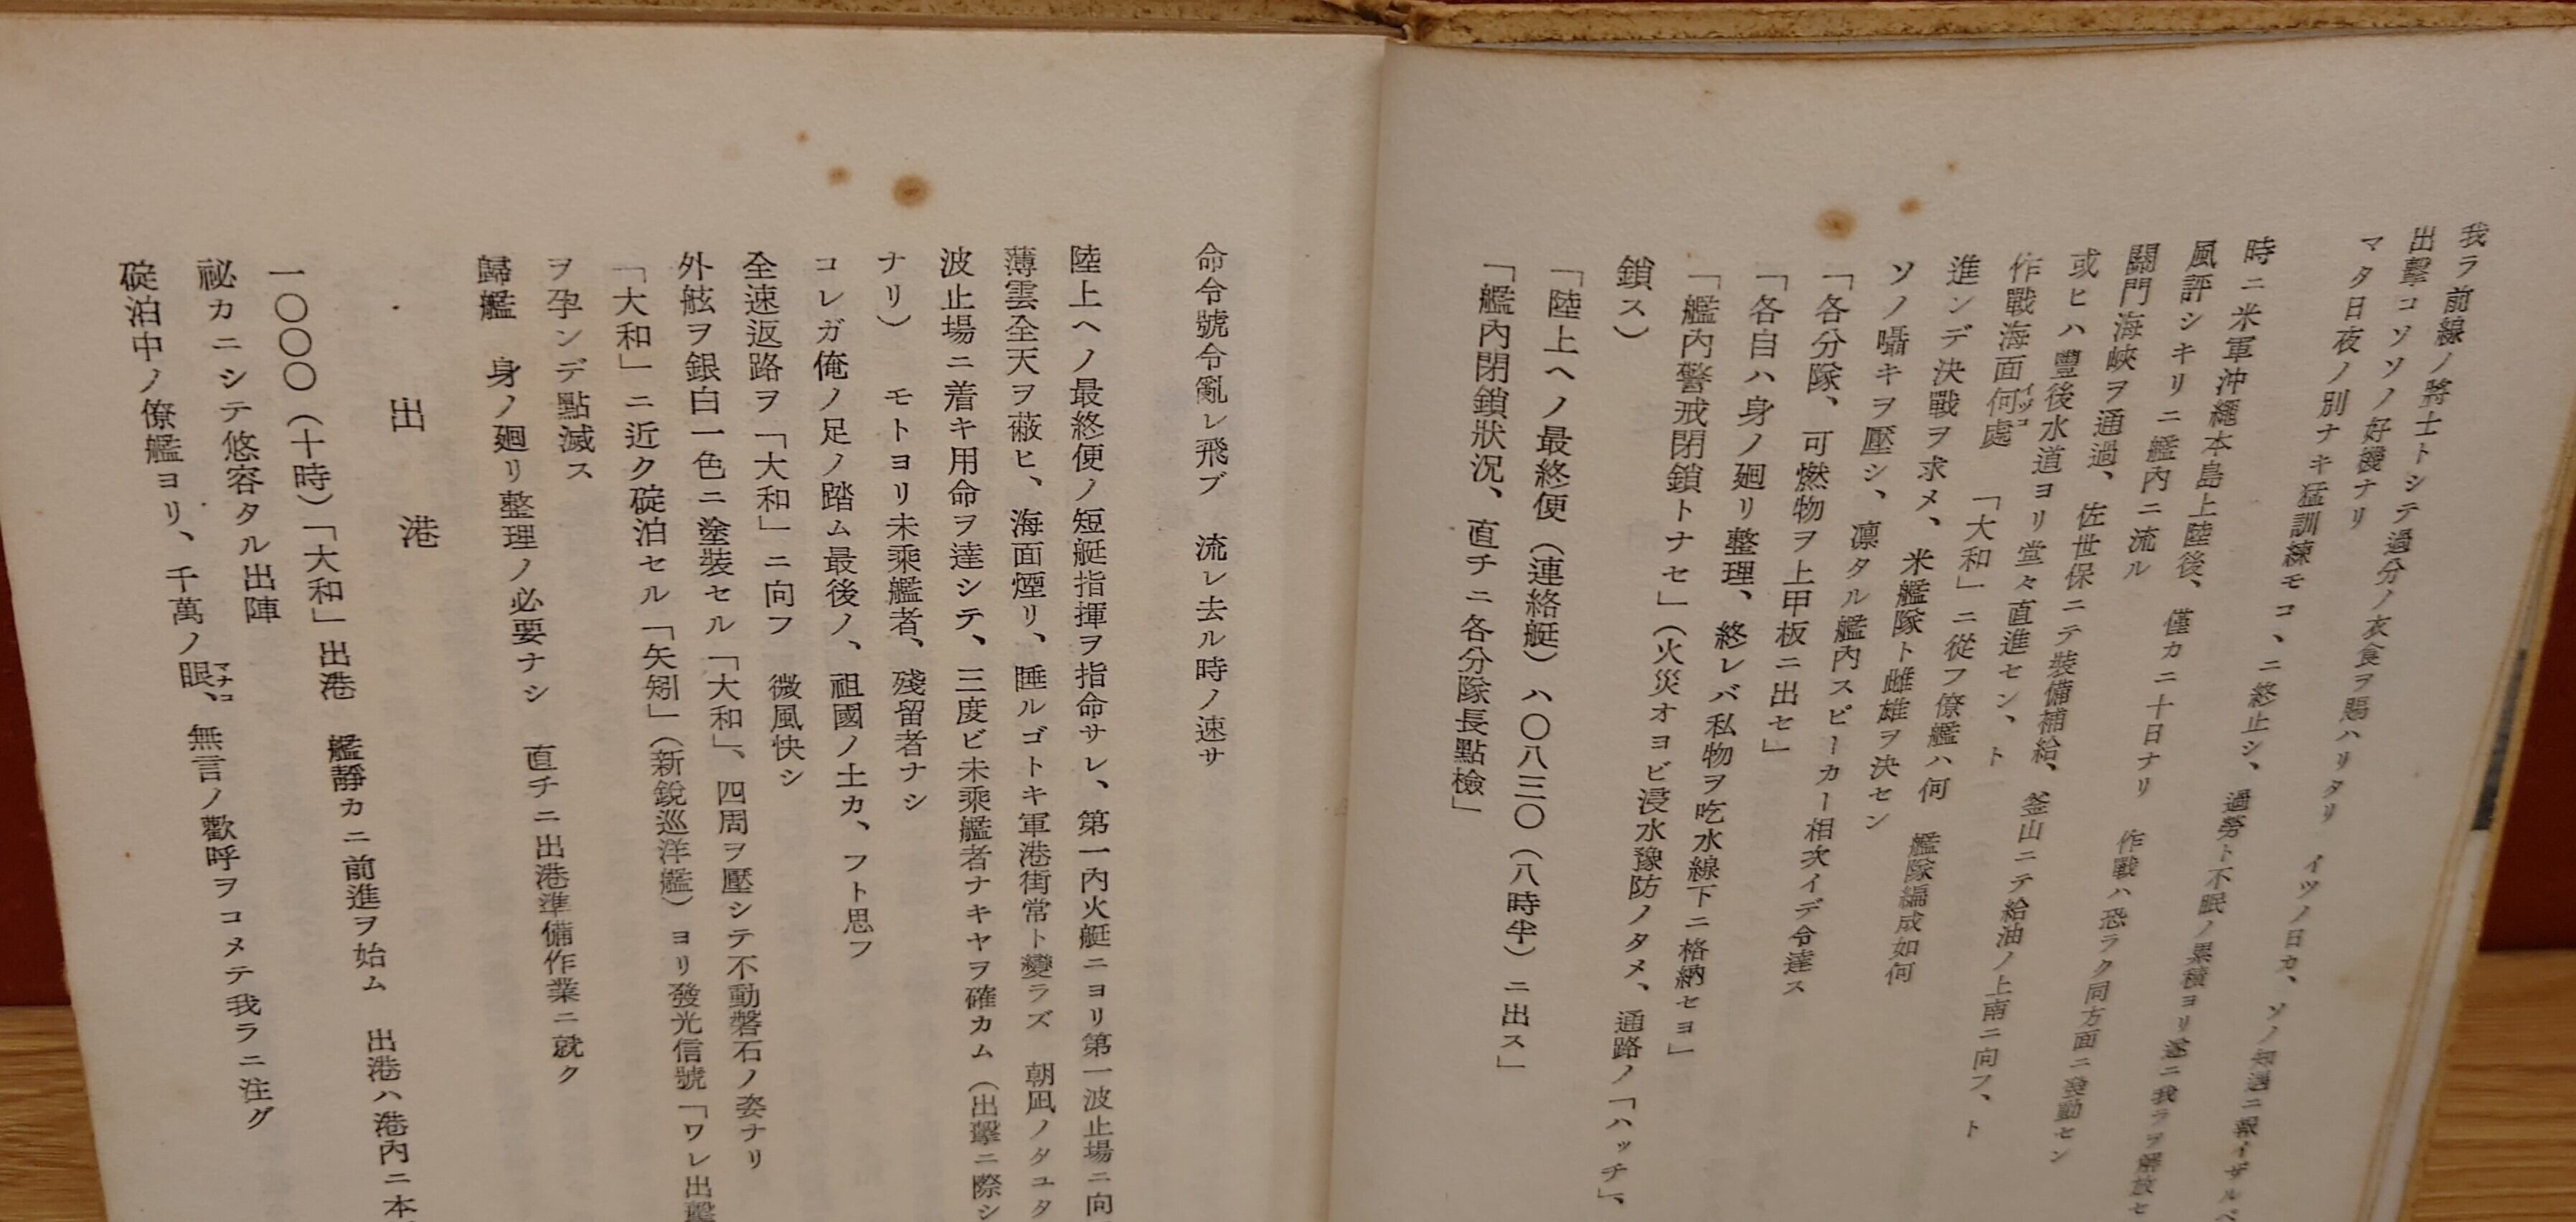 我ラ前線ノ將士トシテ過分ノ衣食ヲ賜ハリタリ　イツノ日カ、ソノ知遇ニ報イザルベ
出擊コソソノ好機ナリ
マタ日夜ノ別ナキ猛訓練モコヽニ終止シ、過勞ト不眠ノ累積ヨリ遂ニ我ラヲ解放セ
時ニ米軍沖繩本島上陸後、僅カニ十日ナリ　作戰ハ恐ラク同方面ニ發動セン
風評シキリニ艦内ニ流ル
關門海峽ヲ通過、佐世保ニテ裝備補給、釜山ニテ給油ノ上南ニ向フ、ト
或ヒハ豐後水道ヨリ堂々直進セン、ト
作戰海面何處　「大和」ニ從フ僚艦ハ何　艦隊編成如何
イヅコ
進ンデ決戰ヲ求メ、米艦隊ト雌雄ヲ決セン
ソノ囁キヲ壓シ、凛タル艦内スピーカー相次イデ令達ス
「各分隊、可燃物ヲ上甲板ニ出セ」
「各自ハ身ノ廻リ整理、終レバ私物ヲ吃水線下ニ格納セヨ」
「艦内警戒閉鎖トナセ」（火災オヨビ浸水豫防ノタメ、通路ノ「ハッチ」、
鎖ス）
「陸上ヘノ最終便（連絡艇）ハ〇八三〇（八時半）ニ出ス」
「艦内閉鎖狀況、直チニ各分隊長點檢」
命令號令亂レ飛ブ　流レ去ル時ノ速サ
陸上ヘノ最終便ノ短艇指揮ヲ指命サレ、第一内火艇ニヨリ第一波止場ニ向
薄雲全天ヲ蔽ヒ、海面煙リ、睡ルゴトキ軍港街常ト變ラズ　朝凪ノタユタ
波止場ニ着キ用命ヲ達シテ、三度ビ未乘艦者ナキヤヲ確カム（出擊ニ際シ
ナリ）　モトヨリ未乘艦者、殘留者ナシ
コレガ俺ノ足ノ踏ム最後ノ、祖國ノ土カ、フト思フ
全速返路ヲ「大和」ニ向フ　微風快シ
外舷ヲ銀白一色ニ塗裝セル「大和」、四周ヲ壓シテ不動磐石ノ姿ナリ
「大和」ニ近ク碇泊セル「矢矧」（新銳巡洋艦）ヨリ發光信號「ワレ出擊
ヲ孕ンデ點滅ス
歸艦　身ノ廻リ整理ノ必要ナシ　直チニ出港準備作業ニ就ク
出港
一〇〇〇（十時）「大和」出港　艦靜カニ前進ヲ始ム　出港ハ港内ニ本
祕カニシテ悠容タル出陣
碇泊中ノ僚艦ヨリ、千萬ノ眼、無言ノ歡呼ヲコメテ我ラニ注グ
マナコ